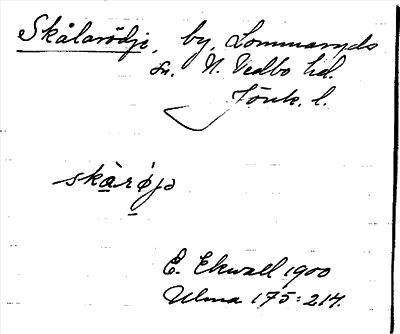 Skålarödje, by, Lommaryds
sn. N. Vedbo hd.
Jönk. l.
skàrøjə
E. Ekwall 1900
Ulma 175:217.